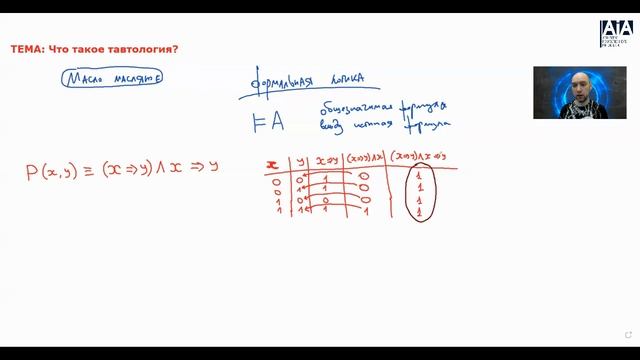 ТЕМА: Что такое тавтология?
Масло масляное
Формальная логика
⊨A
общезначимая формула
всюду истинная формула
P(x,y) ≡ (x⇒y)∧x ⇒ y
x y x⇒y (x⇒y)∧x (x⇒y)∧x⇒y
0 0 1 0 1
0 1 1 0 1
1 0 0 0 1
1 1 1 1 1
AIA